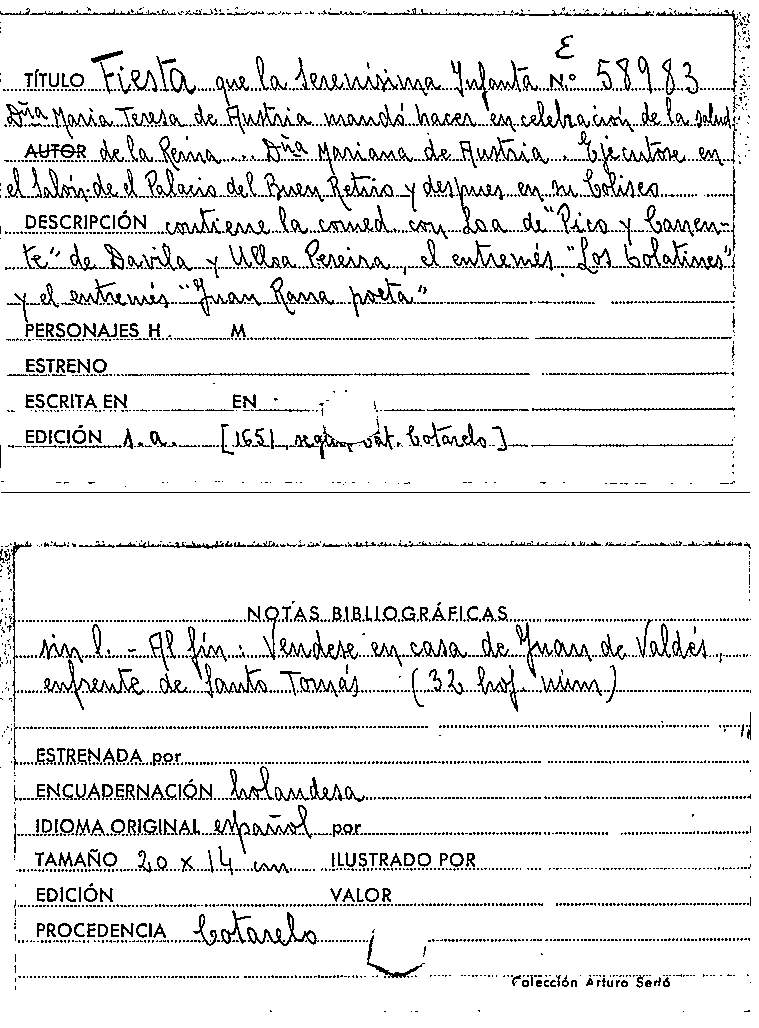 E
TÍTULO Fiesta que la Serenísima Infanta N.º 58983
Dña Maria Teresa de Austria mandó hacer en celebración de la salud
AUTOR de la Reina... Dña Mariana de Austria. Ejecutose en
el Salón de el Palacio del Buen Retiro y despues en su Coliseo
DESCRIPCIÓN contiene la comed. con Loa de "Pico y Canen-
te" de Davila y Ulloa Pereira, el entremés "Los Volatines"
y el entremés "Juan Rana poeta"
PERSONAJES H. M
ESTRENO
ESCRITA EN EN
EDICIÓN s.a. [1651, según cat. Cotarelo]
NOTAS BIBLIOGRÁFICAS
sin l. - Al fin: Vendese en casa de Juan de Valdés,
enfrente de Santo Tomás (32 hoj. núm)
ESTRENADA por
ENCUADERNACIÓN holandesa
IDIOMA ORIGINAL español por
TAMAÑO 20 x 14 cm ILUSTRADO POR
EDICIÓN VALOR
PROCEDENCIA Cotarelo
Colección Arturo Sedó